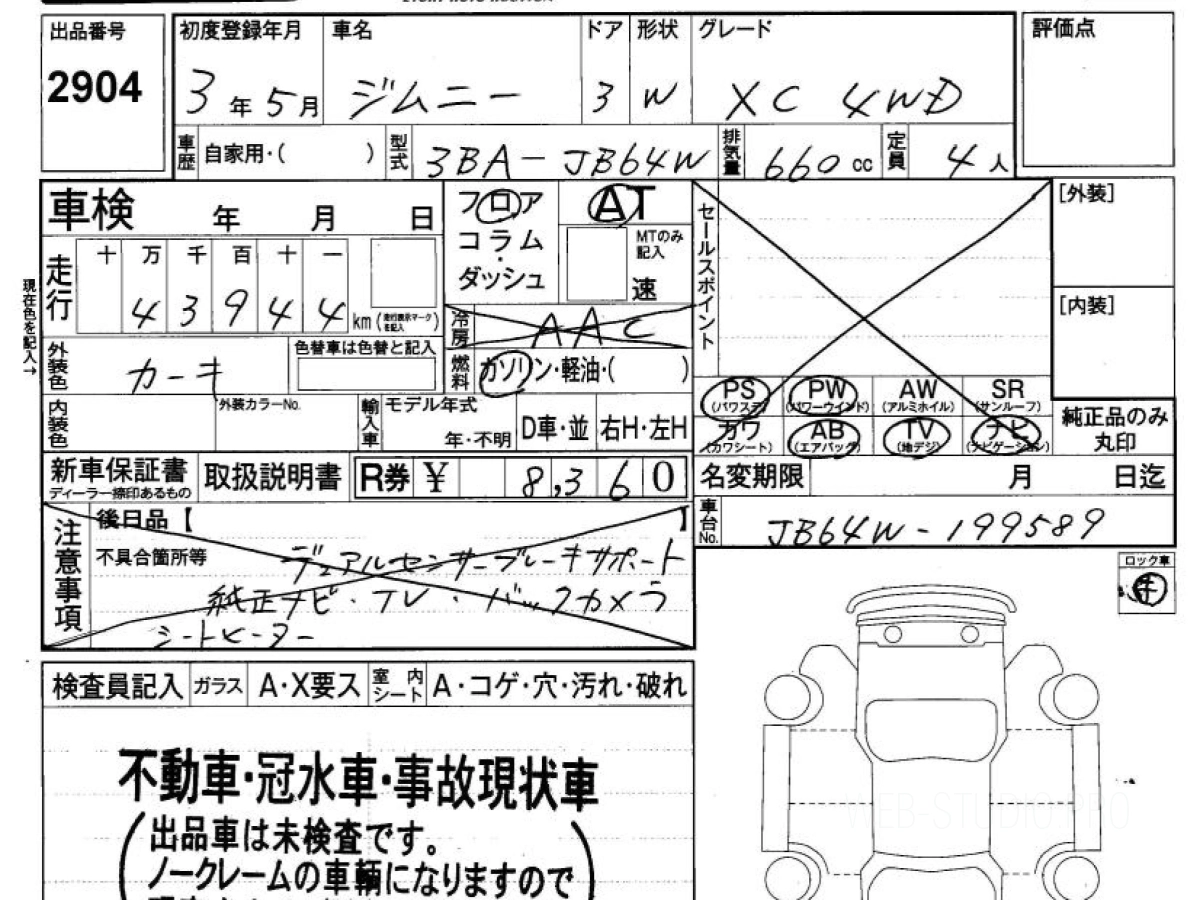 出品番号 初度登録年月 車名 ドア 形状 グレード 評価点
2904 3年5月 ジムニー 3 W XC 4WD
車歴 自家用・( ) 型式 3BA-JB64W 排気量 660cc 定員 4人
車検 年 月 日 フロア AT セールスポイント [外装]
コラム・ MTのみ記入
ダッシュ 速
走行 十 万 千 百 十 一
4 3 9 4 4 km (走行表示マークを記入) [内装]
現在色を記入→
冷房 AAC
外装色 カーキ 色替車は色替と記入 燃料 ガソリン・軽油・( )
PS (パワステ) PW (パワーウインド) AW (アルミホイル) SR (サンルーフ)
カワ (カワシート) AB (エアバッグ) TV (地デジ) ナビ (ナビゲーション) 純正品のみ丸印
内装色 外装カラーNo. 輸入車 モデル年式 年・不明 D車・並 右H・左H
新車保証書 ディーラー捺印あるもの 取扱説明書 R券 ¥ 8,360 名変期限 月 日迄
車台No. JB64W-199589
注意事項 後日品【 】
不具合箇所等 デュアルセンサーブレーキサポート
純正ナビ・TV・バックカメラ
シートヒーター
ロック車
キ
検査員記入 ガラス A・X要ス 室内シート A・コゲ・穴・汚れ・破れ
不動車・冠水車・事故現状車
(出品車は未検査です。
ノークレームの車輌になりますので)
WEB-STUDIO.PRO